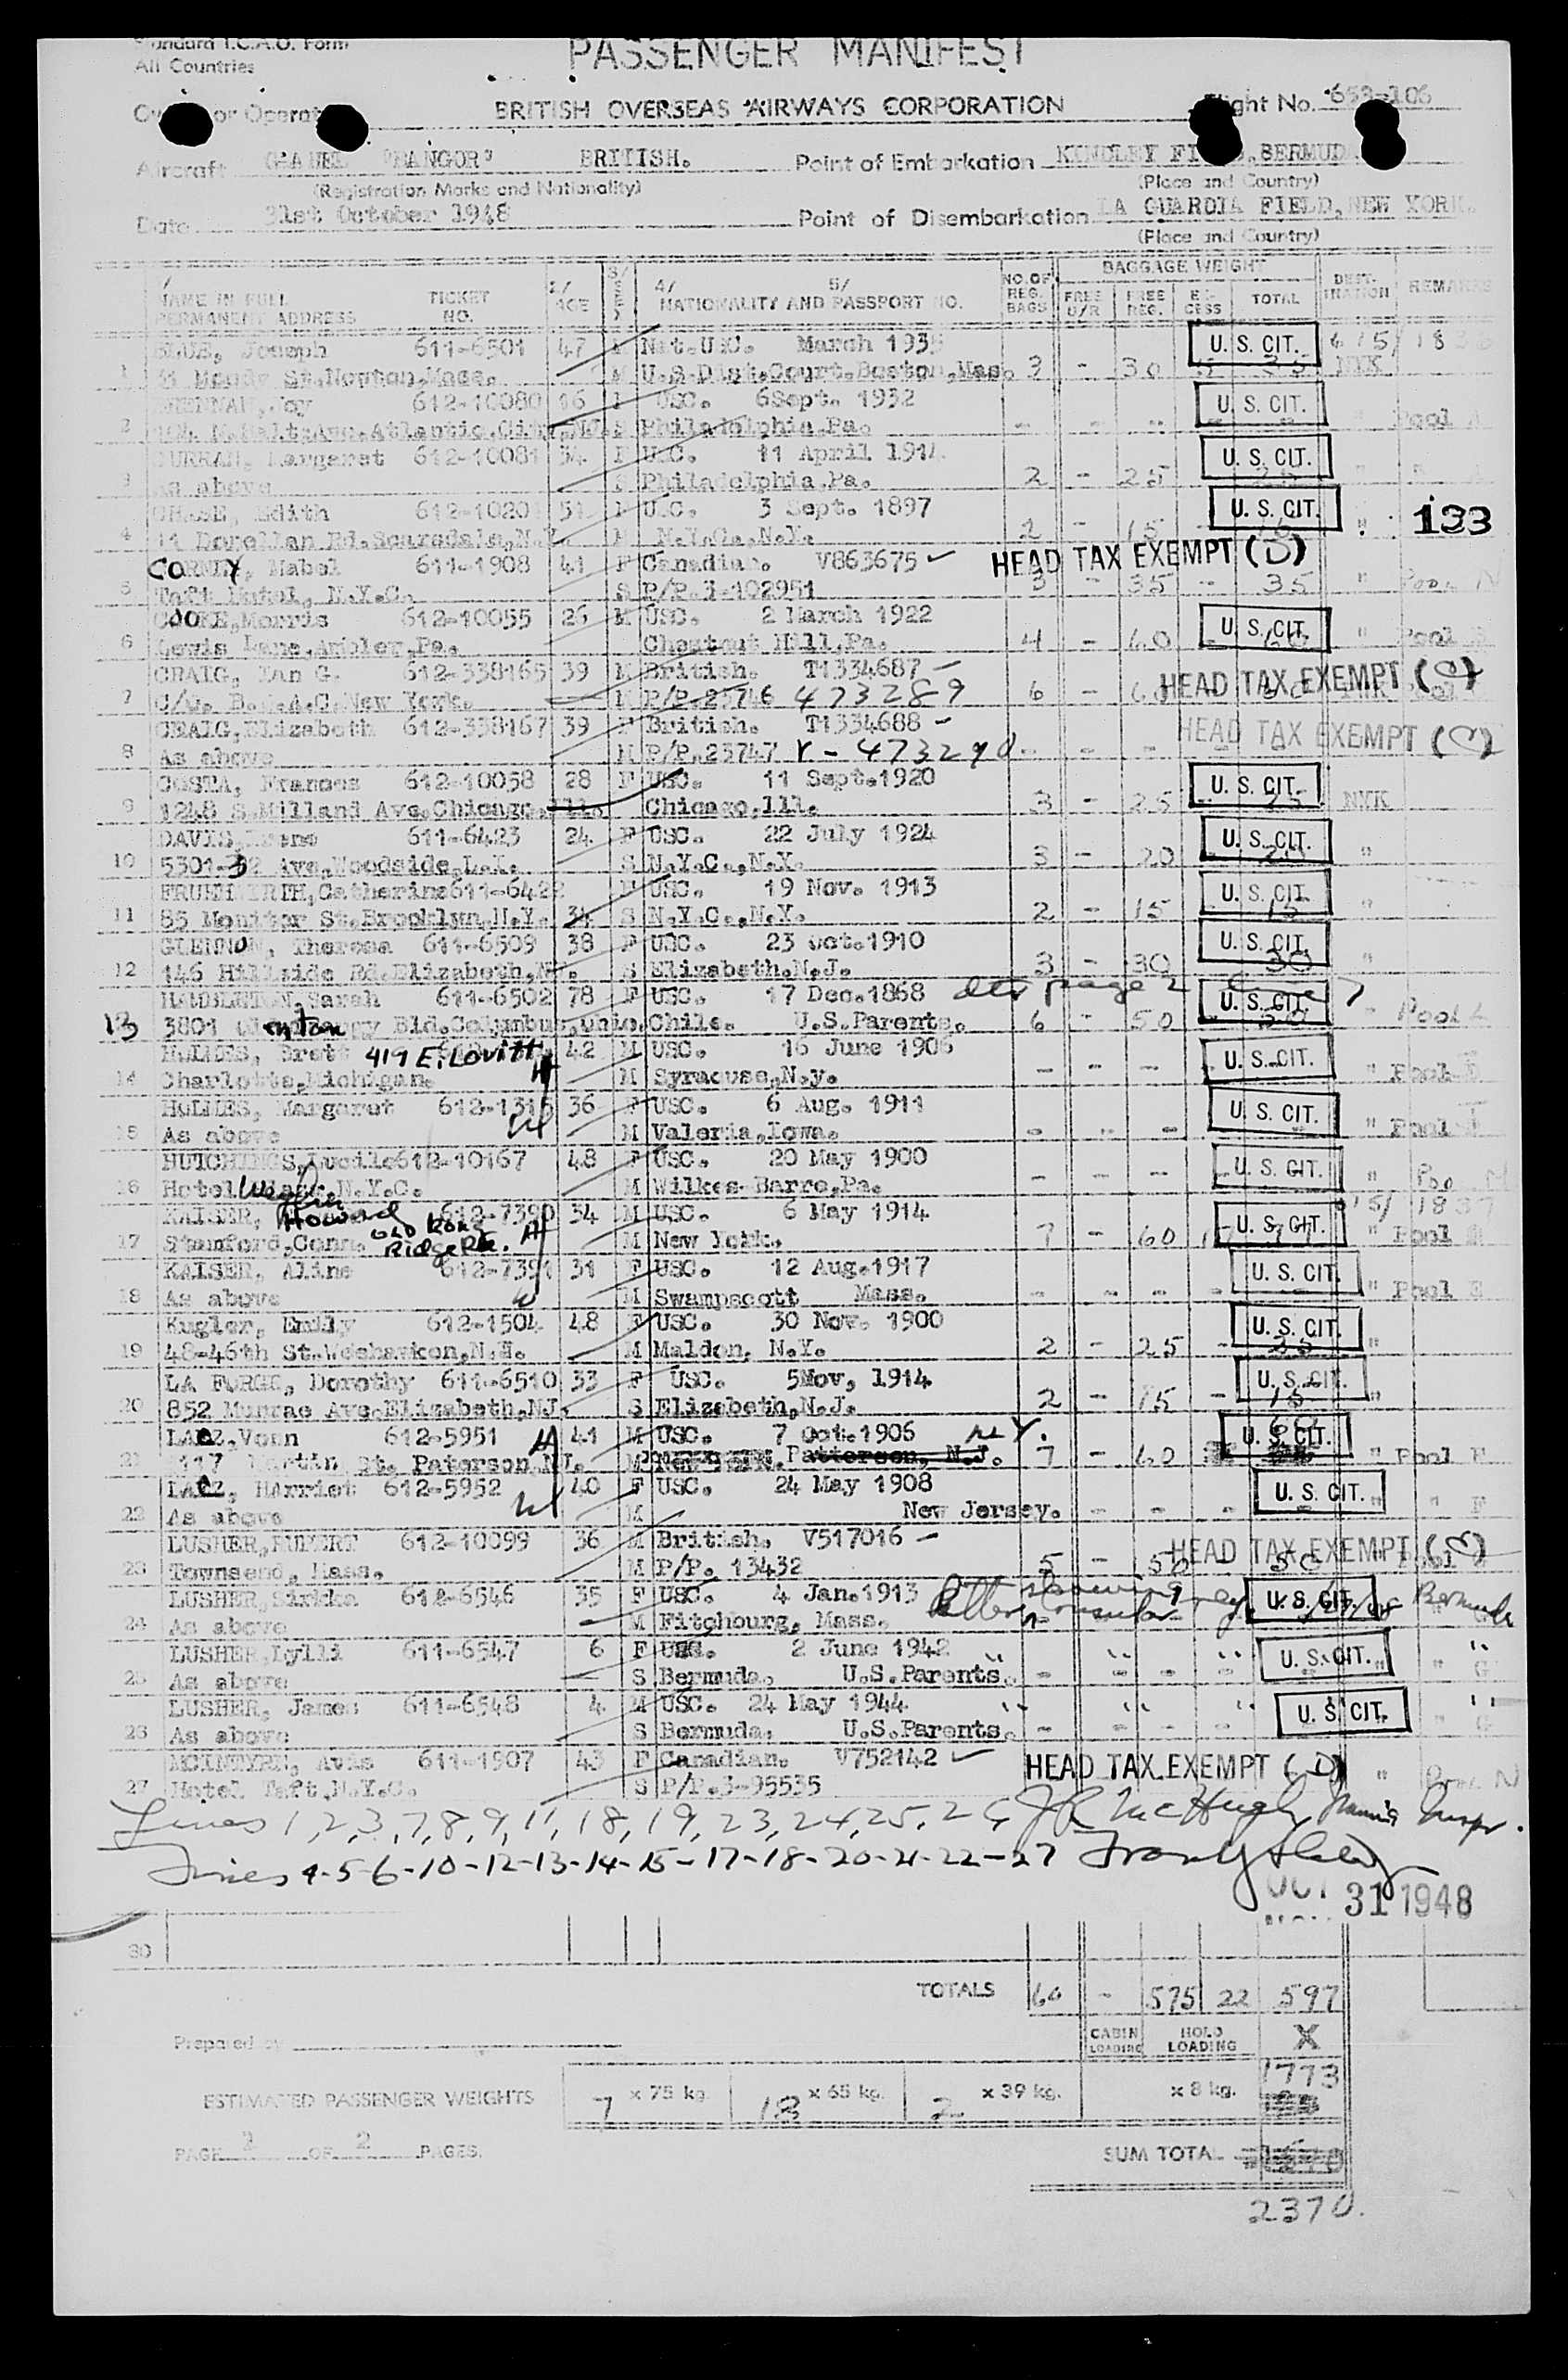 Standard I.C.A.O. Form
All Countries
PASSENGER MANIFEST
BRITISH OVERSEAS AIRWAYS CORPORATION
Flight No.
Aircraft "BANGOR" BRITISH. Point of Embarkation KINDLEY
(Registration Marks and Nationality) (Place and Country)
Date 31st October 1948 Point of Disembarkation LA GUARDIA FIELD, NEW YORK.
(Place and Country)
NAME IN FULL PERMANENT ADDRESS TICKET NO. 2/ AGE 3/ SEX 4/ 5/ NATIONALITY AND PASSPORT NO. NO. OF REG. BAGS BAGGAGE WEIGHT FREE U/R FREE REG. EXCESS TOTAL DESTINATION REMARKS
Joseph 611-6501 47 Nat.USC. March 1935 U. S. CIT.
1 St.Newton,Mass. M U.S.Dist.Court.Boston,Mas. 3 - 30 5 35 NYK
Joy 612-10080 16 F USC. 6Sept. 1932 U. S. CIT.
2 Atlantic City,NJ. S Philadelphia,Pa. - - - " Pool
CURRAN, Margaret 612-10081 34 F USC. 11 April 1914 U. S. CIT.
3 As above S Philadelphia,Pa. 2 - 25 25 "
Edith 612-1020 51 F USC. 3 Sept. 1897 U. S. CIT. 133
4 11 Rd.Scarsdale,N.Y. N.Y.C.,N.Y. 2 - 15 - "
Mabel 611-1908 41 F Canadian. V863675 ✓ HEAD TAX EXEMPT (D)
5 Taft Hotel, N.Y.C. S P/P.3-102951 3 - 35 - 35 " Pool N
COOKE,Morris 612-10055 26 M USC. 2 March 1922 U. S. CIT.
6 Lewis Lane,Ambler,Pa. Chestnut Hill,Pa. 4 - 60 - 60 " Pool
CRAIG, Ian G. 612-338165 39 M British. T1334687 - HEAD TAX EXEMPT
7 C/o. B.O.A.C.New York. M P/P.25746 473289 6 - 60
CRAIG,Elizabeth 612-338167 39 F British. T1334688 - HEAD TAX EXEMPT
8 As above M P/P.25747 Y - 473290 - - -
COSTA, Frances 612-10058 28 F USC. 11 Sept.1920 U. S. CIT.
9 1248 S.Milland Ave.Chicago.Ill. Chicago,Ill. 3 - 25 - 25 NYK
DAVIS, 611-6423 24 F USC. 22 July 1924 U. S. CIT.
10 5301-32 Ave,Woodside,L.I. S N.Y.C.,N.Y. 3 - 20 - 20 "
Catherine611-6422 F USC. 19 Nov. 1913 U. S. CIT.
11 85 Monitor St.Brooklyn,N.Y. 34 S N.Y.C.,N.Y. 2 - 15 - 15 "
GLENNON, Theresa 611-6509 38 F USC. 23 Oct.1910 U. S. CIT.
12 146 Hillside Rd.Elizabeth,NJ. S Elizabeth.N.J. 3 - 30 30 "
Sarah 611-6502 78 F USC. 17 Dec.1868 page 2 U. S. CIT.
13 3801 Bld.Columbus,Ohio. Chile. U.S.Parents. 6 - 50 - 50 " Pool L
HOLMES, 419 E. Lovitt 42 M USC. 16 June 1906 U. S. CIT.
14 Charlotte,Michigan. M Syracuse,N.y. - - - - " Pool
HOLMES, Margaret 612-1315 36 F USC. 6 Aug. 1911 U. S. CIT.
15 As above M Valeria,Iowa. - - - " Pool
HUTCHINGS,Lucile612-10167 48 F USC. 20 May 1900 U. S. CIT.
16 Hotel N.Y.C. M Wilkes Barre,Pa. - - - - "
KAISER, Howard 612-7390 34 M USC. 6 May 1914 U. S. CIT.
17 Stamford,Conn. Old Long Ridge Rd. M New York. 7 - 60 " Pool
KAISER, Aline 612-7391 31 F USC. 12 Aug.1917 U. S. CIT.
18 As above M Swampscott Mass. - - - - " Pool E
Kugler, Emily 612-1504 48 F USC. 30 Nov. 1900 U. S. CIT.
19 48-46th St.Weehawken,N.J. M Maldon, N.Y. 2 - 25 - 25 "
LA FORGE, Dorothy 611-6510 33 F USC. 5Nov, 1914 U. S. CIT.
20 852 Munrae Ave.Elizabeth,NJ. S Elizabeth,N.J. 2 - 15 - 15 "
612-5951 41 M USC. 7 Oct.1906 N.Y. U. S. CIT.
21 117 Martin St. Paterson NJ. M Patterson, N.J. 7 - 60 60 " Pool F
Harriet 612-5952 40 F USC. 24 May 1908 U. S. CIT.
22 As above M New Jersey. - - - - " " F
LUSHER,RUPERT 612-10099 36 M British. V517016 - HEAD TAX EXEMPT
23 Townsend, Mass. M P/P. 13432 5 - 50 - 50 " Pool G
LUSHER,Sirkka 612-6546 35 F USC. 4 Jan.1913 Letter showing U. S. CIT. Bermuda
24 As above M Fitchbourg, Mass.
LUSHER,Lylli 611-6547 6 F USC. 2 June 1942 U. S. CIT. "
25 As above S Bermuda. U.S.Parents. - - - - " " G
LUSHER, James 611-6548 4 M USC. 24 May 1944 " " " U. S. CIT. "
26 As above S Bermuda. U.S.Parents. - - - - " G
MCINTYRE, Avis 611-1907 43 F Canadian. V752142 ✓ HEAD TAX EXEMPT (D)
27 Hotel Taft,N.Y.C. S P/P.3-95535 " Pool N
Lines 1,2,3,7,8,9,11,18,19,23,24,25,26 J R McHugh Immig Inspr.
Lines 4-5-6-10-12-13-14-15-17-18-20-21-22-27
OCT 31 1948
30
TOTALS 60 - 575 22 597
Prepared by CABIN LOADING HOLD LOADING X
1773
ESTIMATED PASSENGER WEIGHTS 7 x 75 kg. 18 x 65 kg. 2 x 39 kg. x 8 kg.
PAGE 2 OF 2 PAGES. SUM TOTAL
2370.